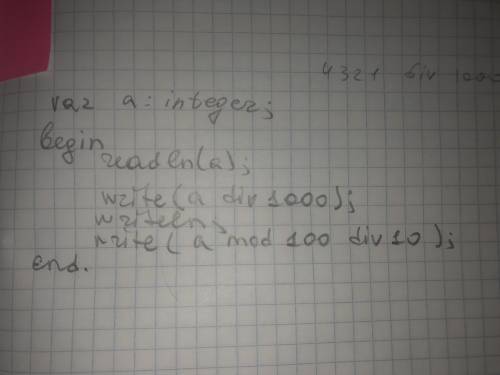 4321 div 100
var a : integer;
begin
readln(a);
write(a div 1000);
writeln;
write( a mod 100 div 10 );
end.